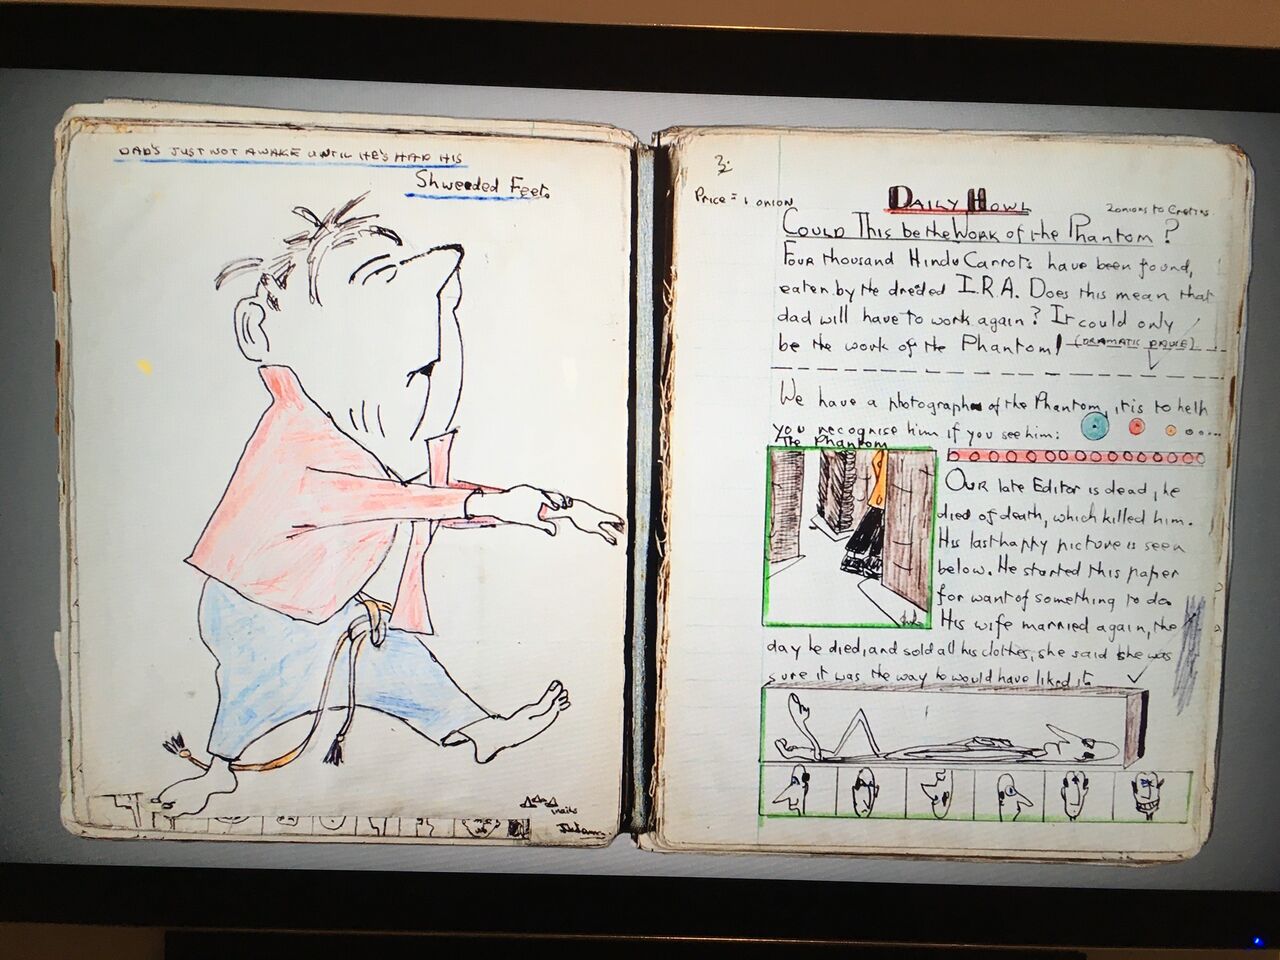 DAD'S JUST NOT AWAKE UNTIL HE'S HAD HIS
Shweeded Feet.
nails
3.
Price = 1 onion
DAILY HOWL
2 onions to Cretins
Could This be the Work of the Phantom?
Four thousand Hindu Carrots have been found,
eaten by the dreded I.R.A. Does this mean that
dad will have to work again? It could only
be the work of the Phantom! (DRAMATIC PAUSE)
We have a photograph of the Phantom, it is to help
you recognise him if you see him:
The Phantom
Our late Editor is dead, he
died of death, which killed him.
His last happy picture is seen
below. He started this paper
for want of something to do.
His wife married again, the
day he died, and sold all his clothes, she said she was
sure it was the way he would have liked it.